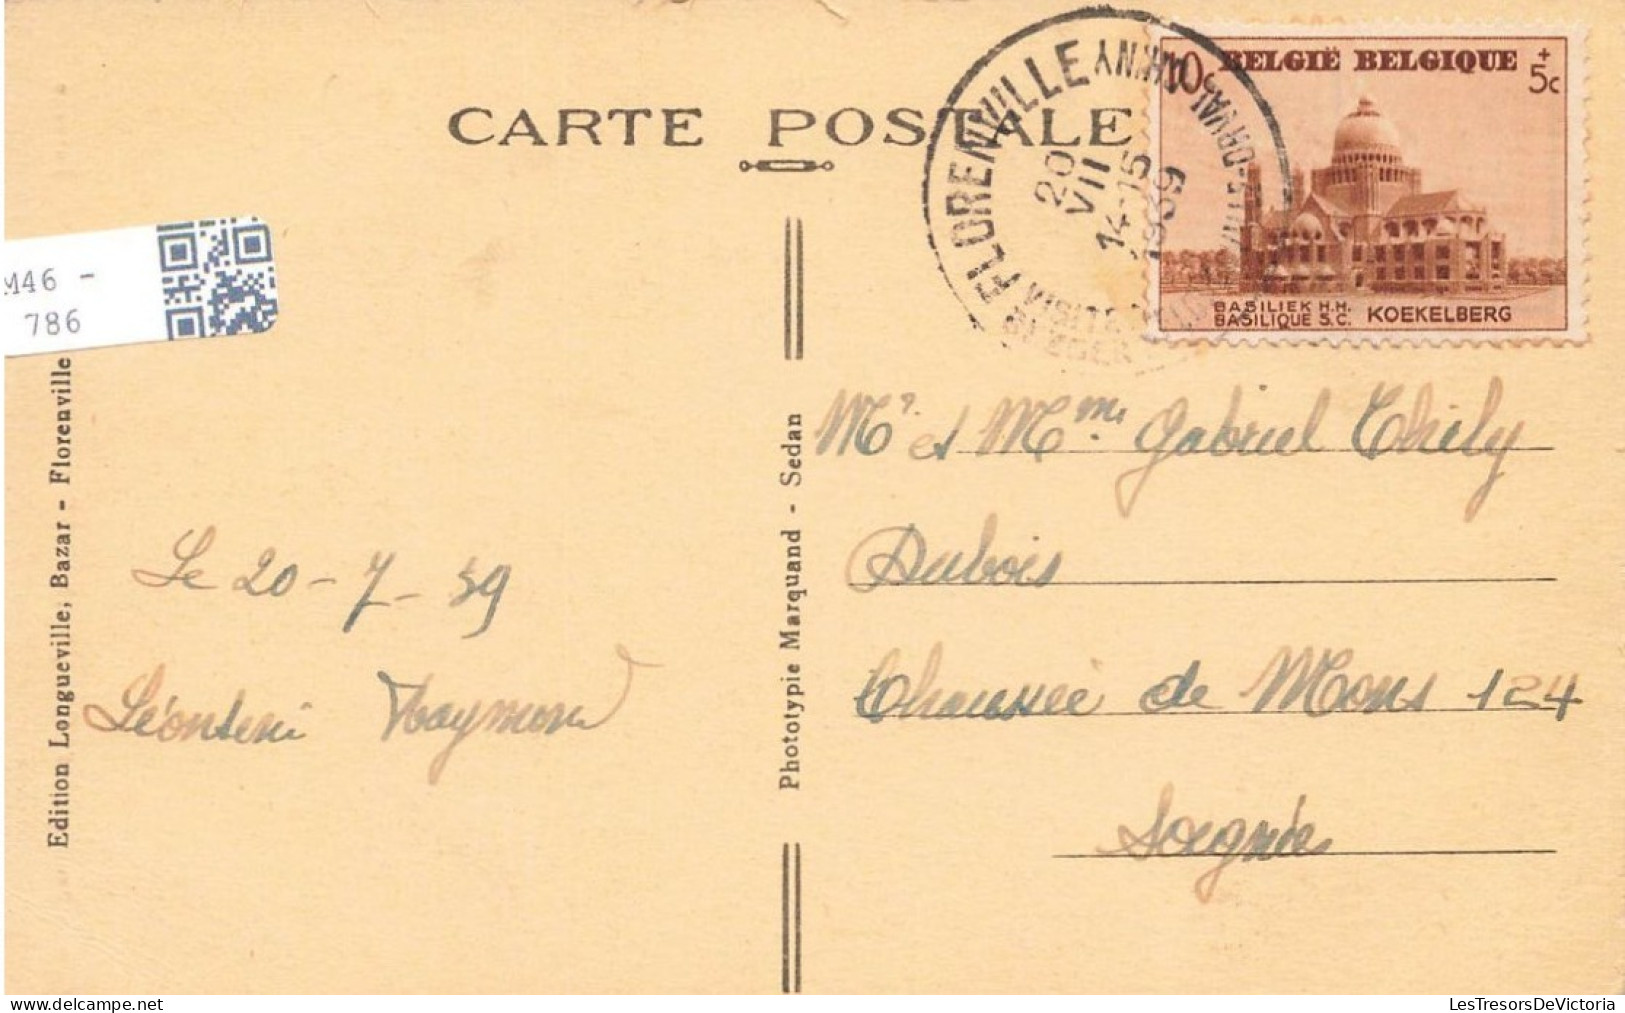 CARTE POSTALE
FLORENVILLE
20
VII
14-15
1939
VISITE
10c BELGIË BELGIQUE + 5c
BASILIEK H.H.
BASILIQUE S.C. KOEKELBERG
M46 -
786
Edition Longueville, Bazar - Florenville
Phototypie Marquand - Sedan
Mr et Mme Gabriel Thily
Dubois
Chaussée de Mons 124
Soignies
Le 20-7-39
Léontine Raymond
LesTresorsDeVictoria